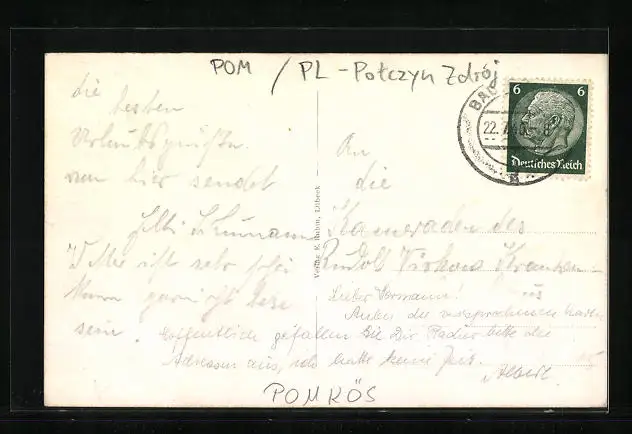 POM / PL - Połczyn Zdrój
BAD
22.7.
6 6
Deutsches Reich
die
besten
Urlaubsgrüße
von hier sendet
Wetter ist sehr schön
kann gar nicht
sein.
An
die
Kameraden des
Rudolf Virchow Kranken-
Verlag E. Rubin, Lübeck
Lieber Hermann!
Anbei die versprochenen Karten
Hoffentlich gefallen sie Dir
bitte die
Adressen aus, ich hatte keine Zeit.
Albert
POMKÖS